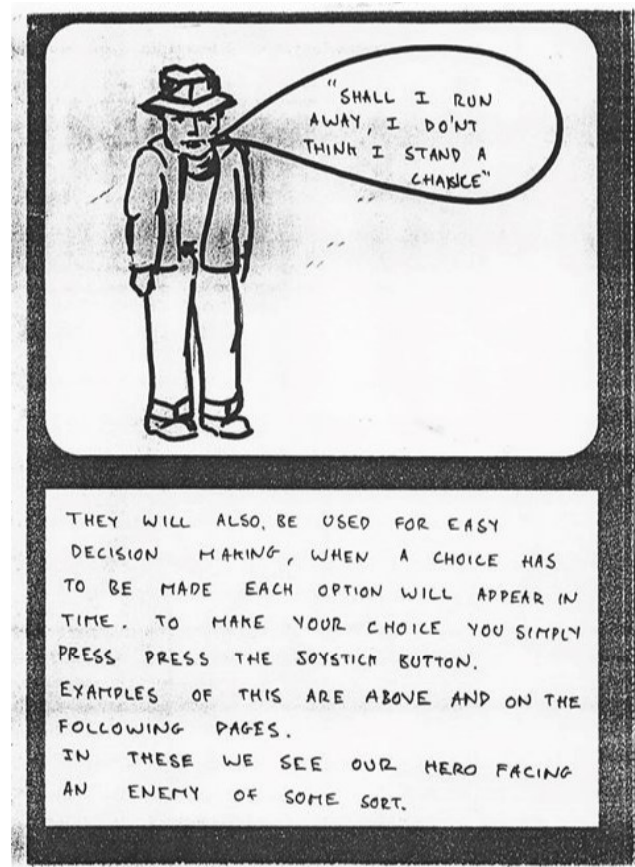 "SHALL I RUN
AWAY, I DO'NT
THINK I STAND A
CHANCE"
THEY WILL ALSO. BE USED FOR EASY
DECISION MAKING, WHEN A CHOICE HAS
TO BE MADE EACH OPTION WILL APPEAR IN
TIME. TO MAKE YOUR CHOICE YOU SIMPLY
PRESS PRESS THE JOYSTICK BUTTON.
EXAMPLES OF THIS ARE ABOVE AND ON THE
FOLLOWING PAGES.
IN THESE WE SEE OUR HERO FACING
AN ENEMY OF SOME SORT.